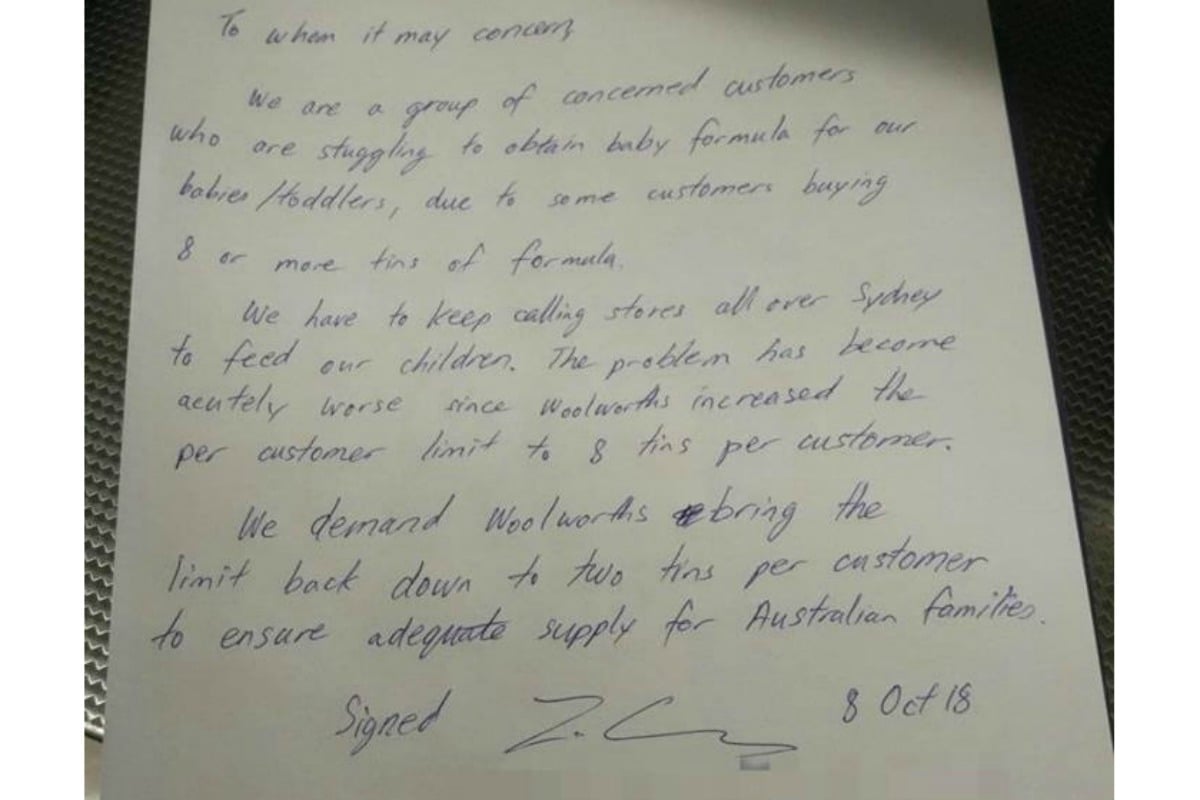 To whom it may concern,
We are a group of concerned customers
who are stuggling to obtain baby formula for our
babies/toddlers, due to some customers buying
8 or more tins of formula.
We have to keep calling stores all over Sydney
to feed our children. The problem has become
acutely worse since Woolworths increased the
per customer limit to 8 tins per customer.
We demand Woolworths bring the
limit back down to two tins per customer
to ensure adequate supply for Australian families.
Signed Z. 8 Oct 18